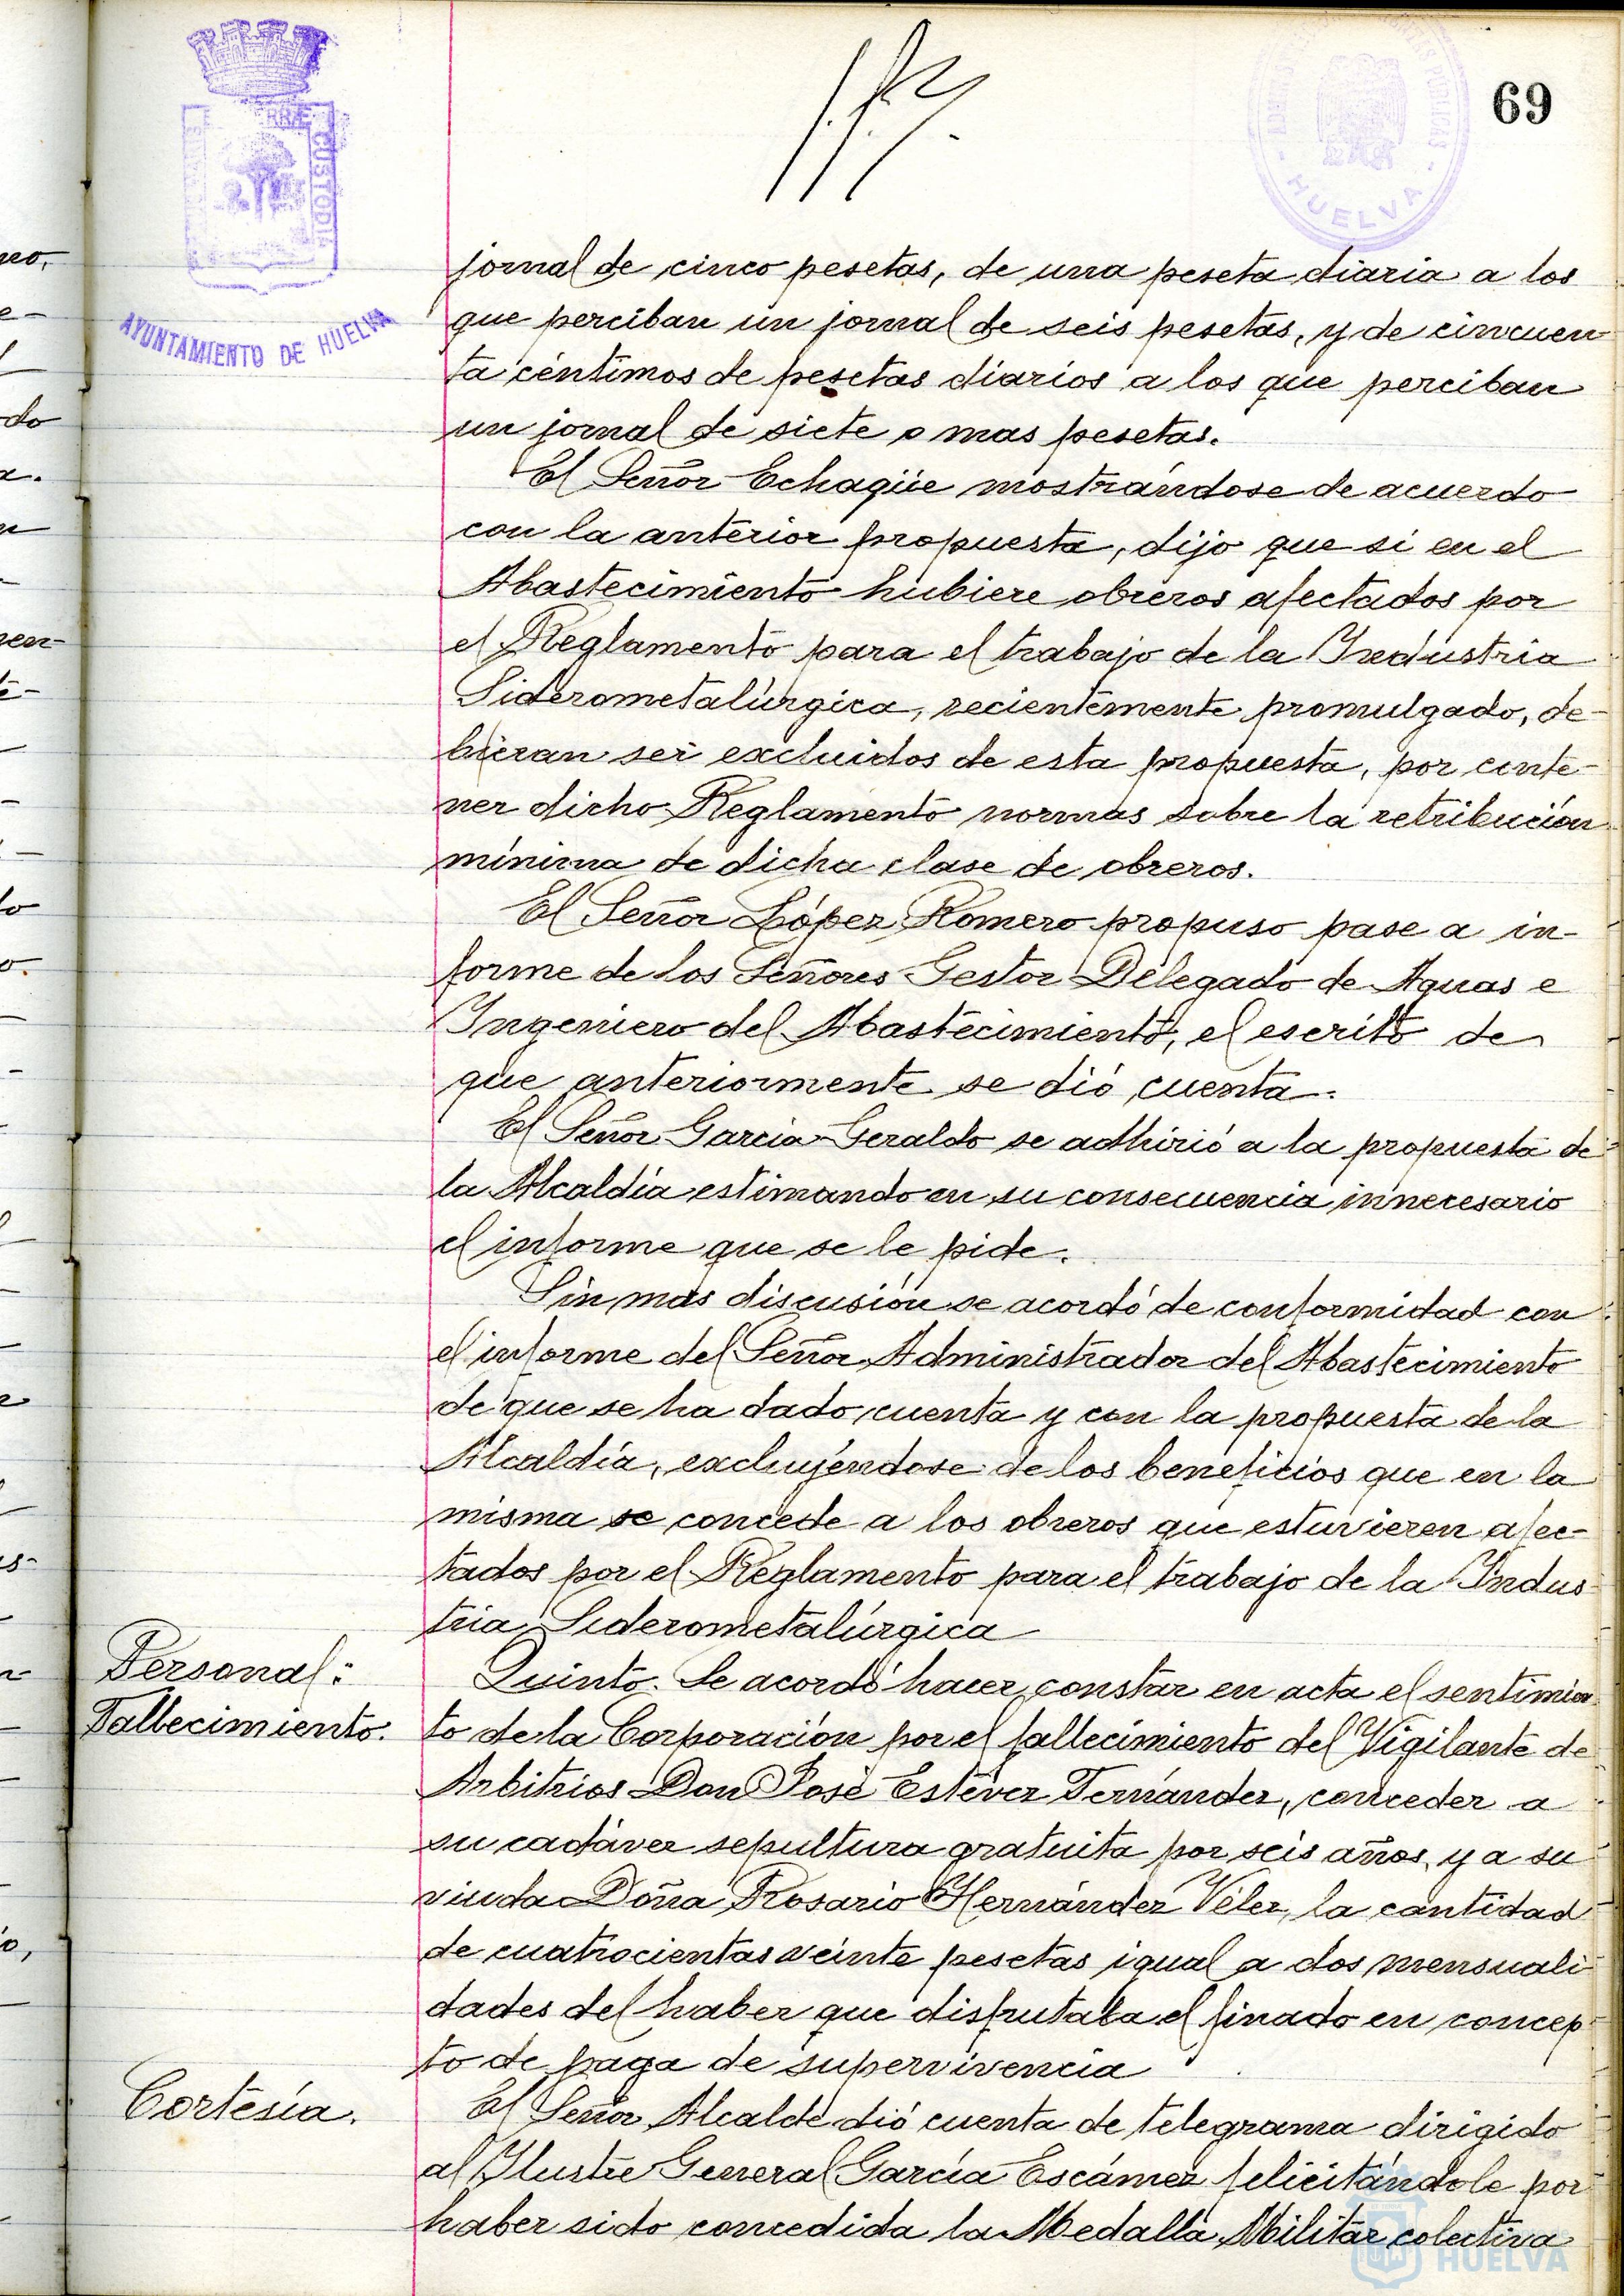 69
AYUNTAMIENTO DE HUELVA
CUSTODIA
HUELVA
jornal de cinco pesetas, de una peseta diaria a los
que perciban un jornal de seis pesetas, y de cincuen
ta céntimos de pesetas diarios a los que perciban
un jornal de siete o mas pesetas.
El Señor Echagüe mostrándose de acuerdo
con la anterior propuesta, dijo que si en el
Abastecimiento hubiere obreros afectados por
el Reglamento para el trabajo de la Industria
Siderometalúrgica, recientemente promulgado, de-
bieran ser excluidos de esta propuesta, por conte-
ner dicho Reglamento normas sobre la retribución
mínima de dicha clase de obreros.
El Señor López Romero propuso pase a in-
forme de los Señores Gestor Delegado de Aguas e
Ingeniero del Abastecimiento, el escrito de
que anteriormente se dió cuenta.
El Señor Garcia Geraldo se adhirió a la propuesta de
la Alcaldía estimando en su consecuencia innecesario
el informe que se le pide.
Sin mas discusión se acordó de conformidad con
el informe del Señor Administrador del Abastecimiento
de que se ha dado cuenta y con la propuesta de la
Alcaldía, excluyéndose de los beneficios que en la
misma se concede a los obreros que estuvieren afec-
tados por el Reglamento para el trabajo de la Indus
tria Siderometalúrgica
Personal:
Fallecimiento.
Quinto. Se acordó hacer constar en acta el sentimien
to de la Corporación por el fallecimiento del Vigilante de
Arbitrios Don José Estévez Fernández, conceder a
su cadáver sepultura gratuita por seis años, y a su
viuda Doña Rosario Hernández Vélez, la cantidad
de cuatrocientas veinte pesetas igual a dos mensuali
dades del haber que disfrutaba el finado en concep
to de paga de supervivencia
Cortesía.
El Señor Alcalde dió cuenta de telegrama dirigido
al Ilustre General García Escámez felicitándole por
haber sido concedida la Medalla Militar colectiva
HUELVA